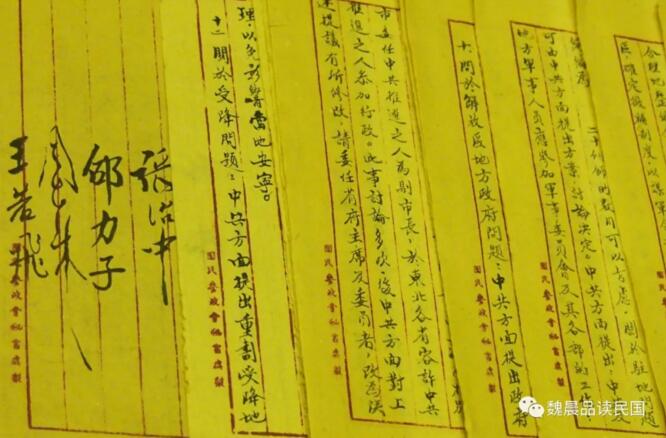 區，確定徵補制度，以謀軍
二十個師的數目可以考慮，關於駐地問題
可由中共方面提出方案討論決定。中共方面提出，中共及
地方軍事人員應參加軍事委員會及其各部的工作
國民參政會秘書處製
十、關於解放區地方政府問題：中共方面提出政府
國民參政會秘書處製
市委任中共推進之人為副市長，於東北各省容許中共
推進之人參加行政。此事討論多次，後中共方面對上
述提議有所修改，請委任省府主席及委員者，改為陝
國民參政會秘書處製
理，以免影響當地安寧。
十二、關於受降問題：中共方面提出重劃受降地
國民參政會秘書處製
張治中
邵力子
周恩來
王若飛
魏晨品读民国